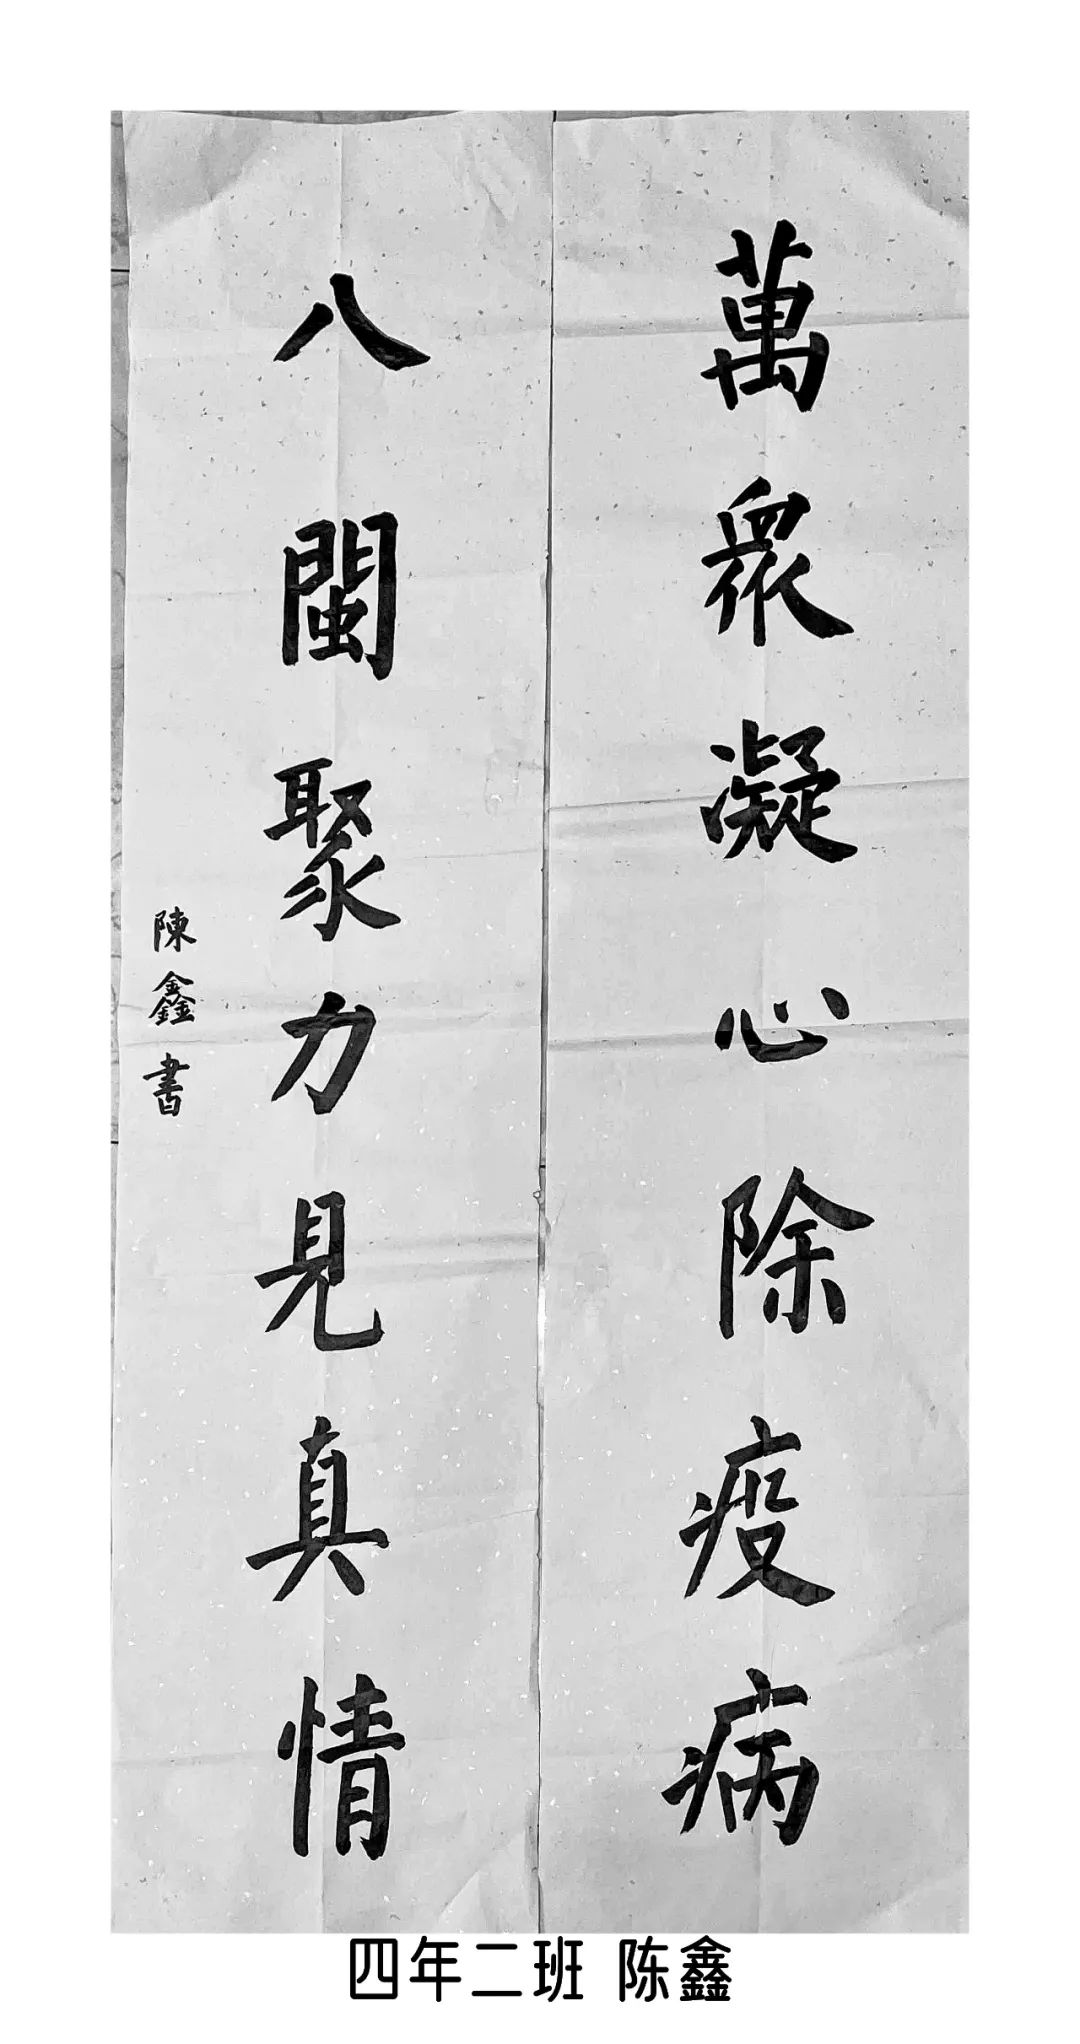 萬眾凝心除疫病
八閩聚力見真情
陳鑫書
四年二班 陈鑫